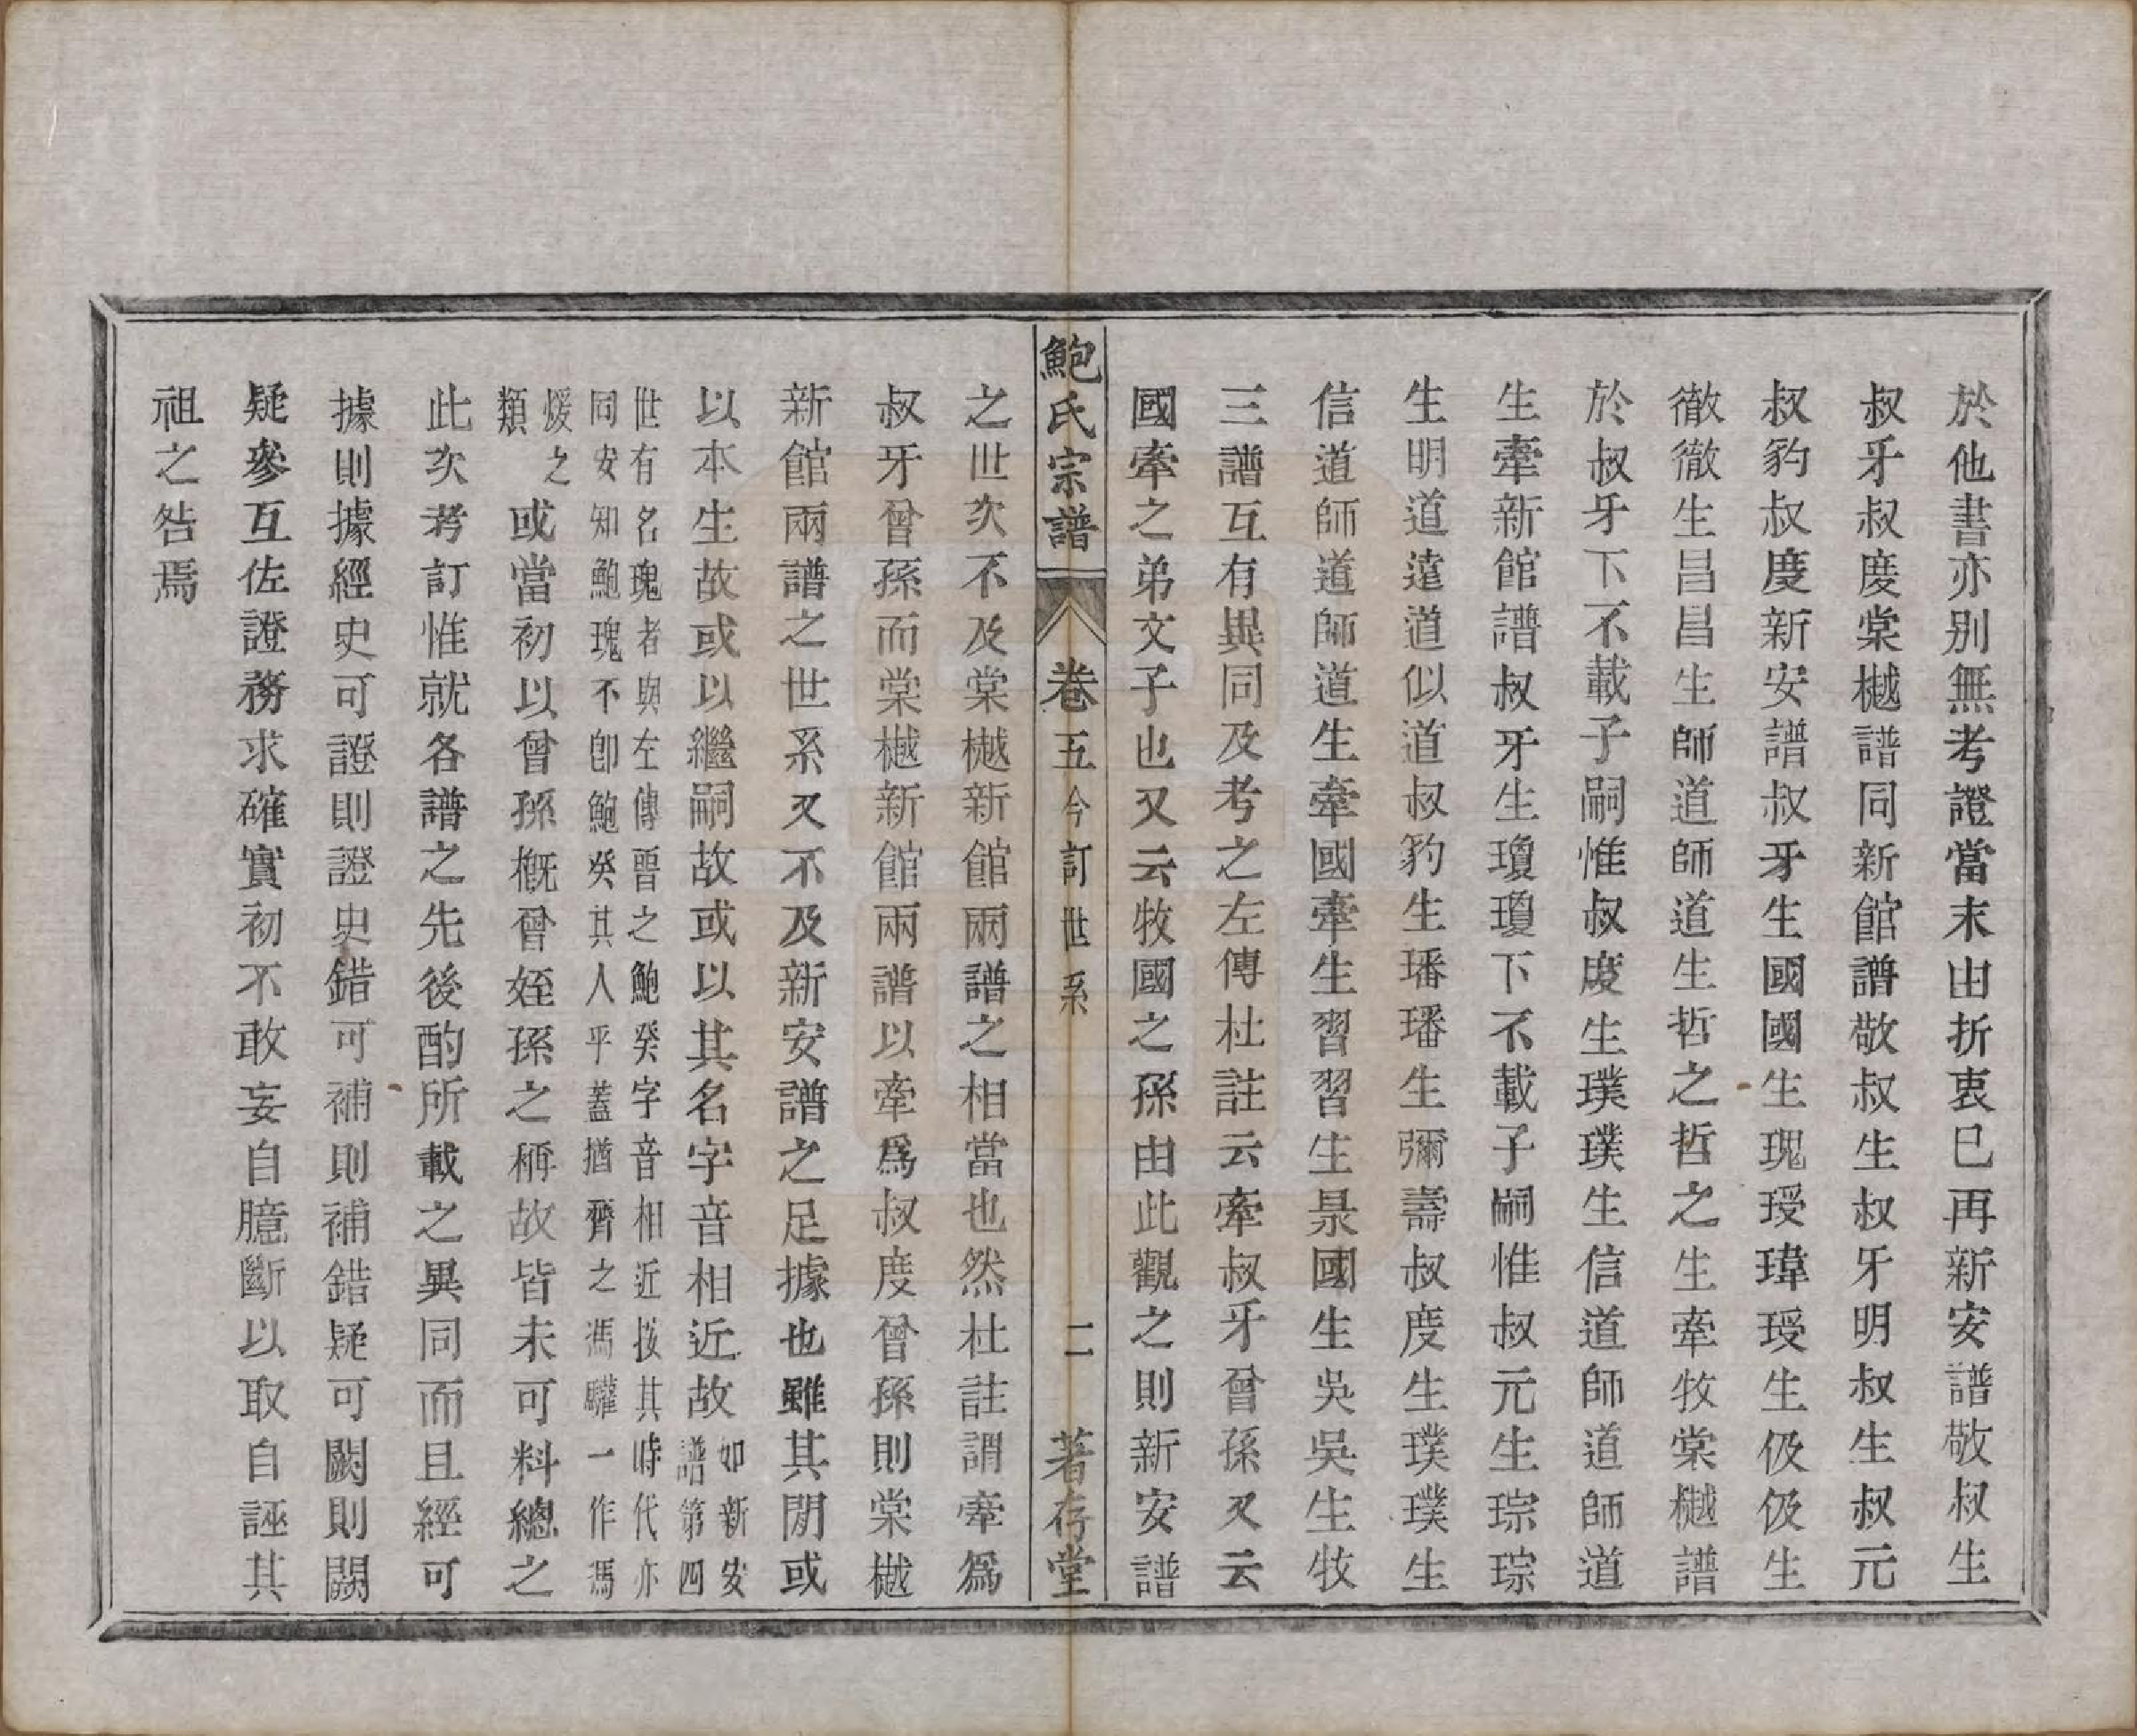 於他書亦別無考證當末由折衷已再新安譜敬叔生
叔牙叔慶棠樾譜同新館譜敬叔生叔牙明叔生叔元
叔豹叔度新安譜叔牙生國國生瑰㻅瑋㻅生伋伋生
徹徹生昌昌生師道師道生哲之哲之生牽牧棠樾譜
於叔牙下不載子嗣惟叔慶生璞璞生信道師道師道
生牽新館譜叔牙生瓊瓊下不載子嗣惟叔元生琮琮
生明道遠道似道叔豹生璠璠生彌壽叔度生璞璞生
信道師道師道生牽國牽生習習生暴國生吳吳生牧
三譜互有異同及考之左傳杜註云牽叔牙曾孫又云
國牽之弟文子也又云牧國之孫由此觀之則新安譜
鮑氏宗譜 卷五 今訂世系 二 著存堂
之世次不及棠樾新館兩譜之相當也然杜註謂牽爲
叔牙曾孫而棠樾新館兩譜以牽爲叔度曾孫則棠樾
新館兩譜之世系又不及新安譜之足據也雖其閒或
以本生故或以繼嗣故或以其名字音相近故如新安譜第四
世有名瑰者與左傳晋之鮑癸字音相近按其時代亦
同安知鮑瑰不卽鮑癸其人乎蓋猶齊之馮驩一作馮
煖之類或當初以曾孫概曾姪孫之稱故皆未可料總之
此次考訂惟就各譜之先後酌所載之異同而且經可
據則據經史可證則證史錯可補則補錯疑可闕則闕
疑參互佐證務求確實初不敢妄自臆斷以取自誣其
祖之咎焉